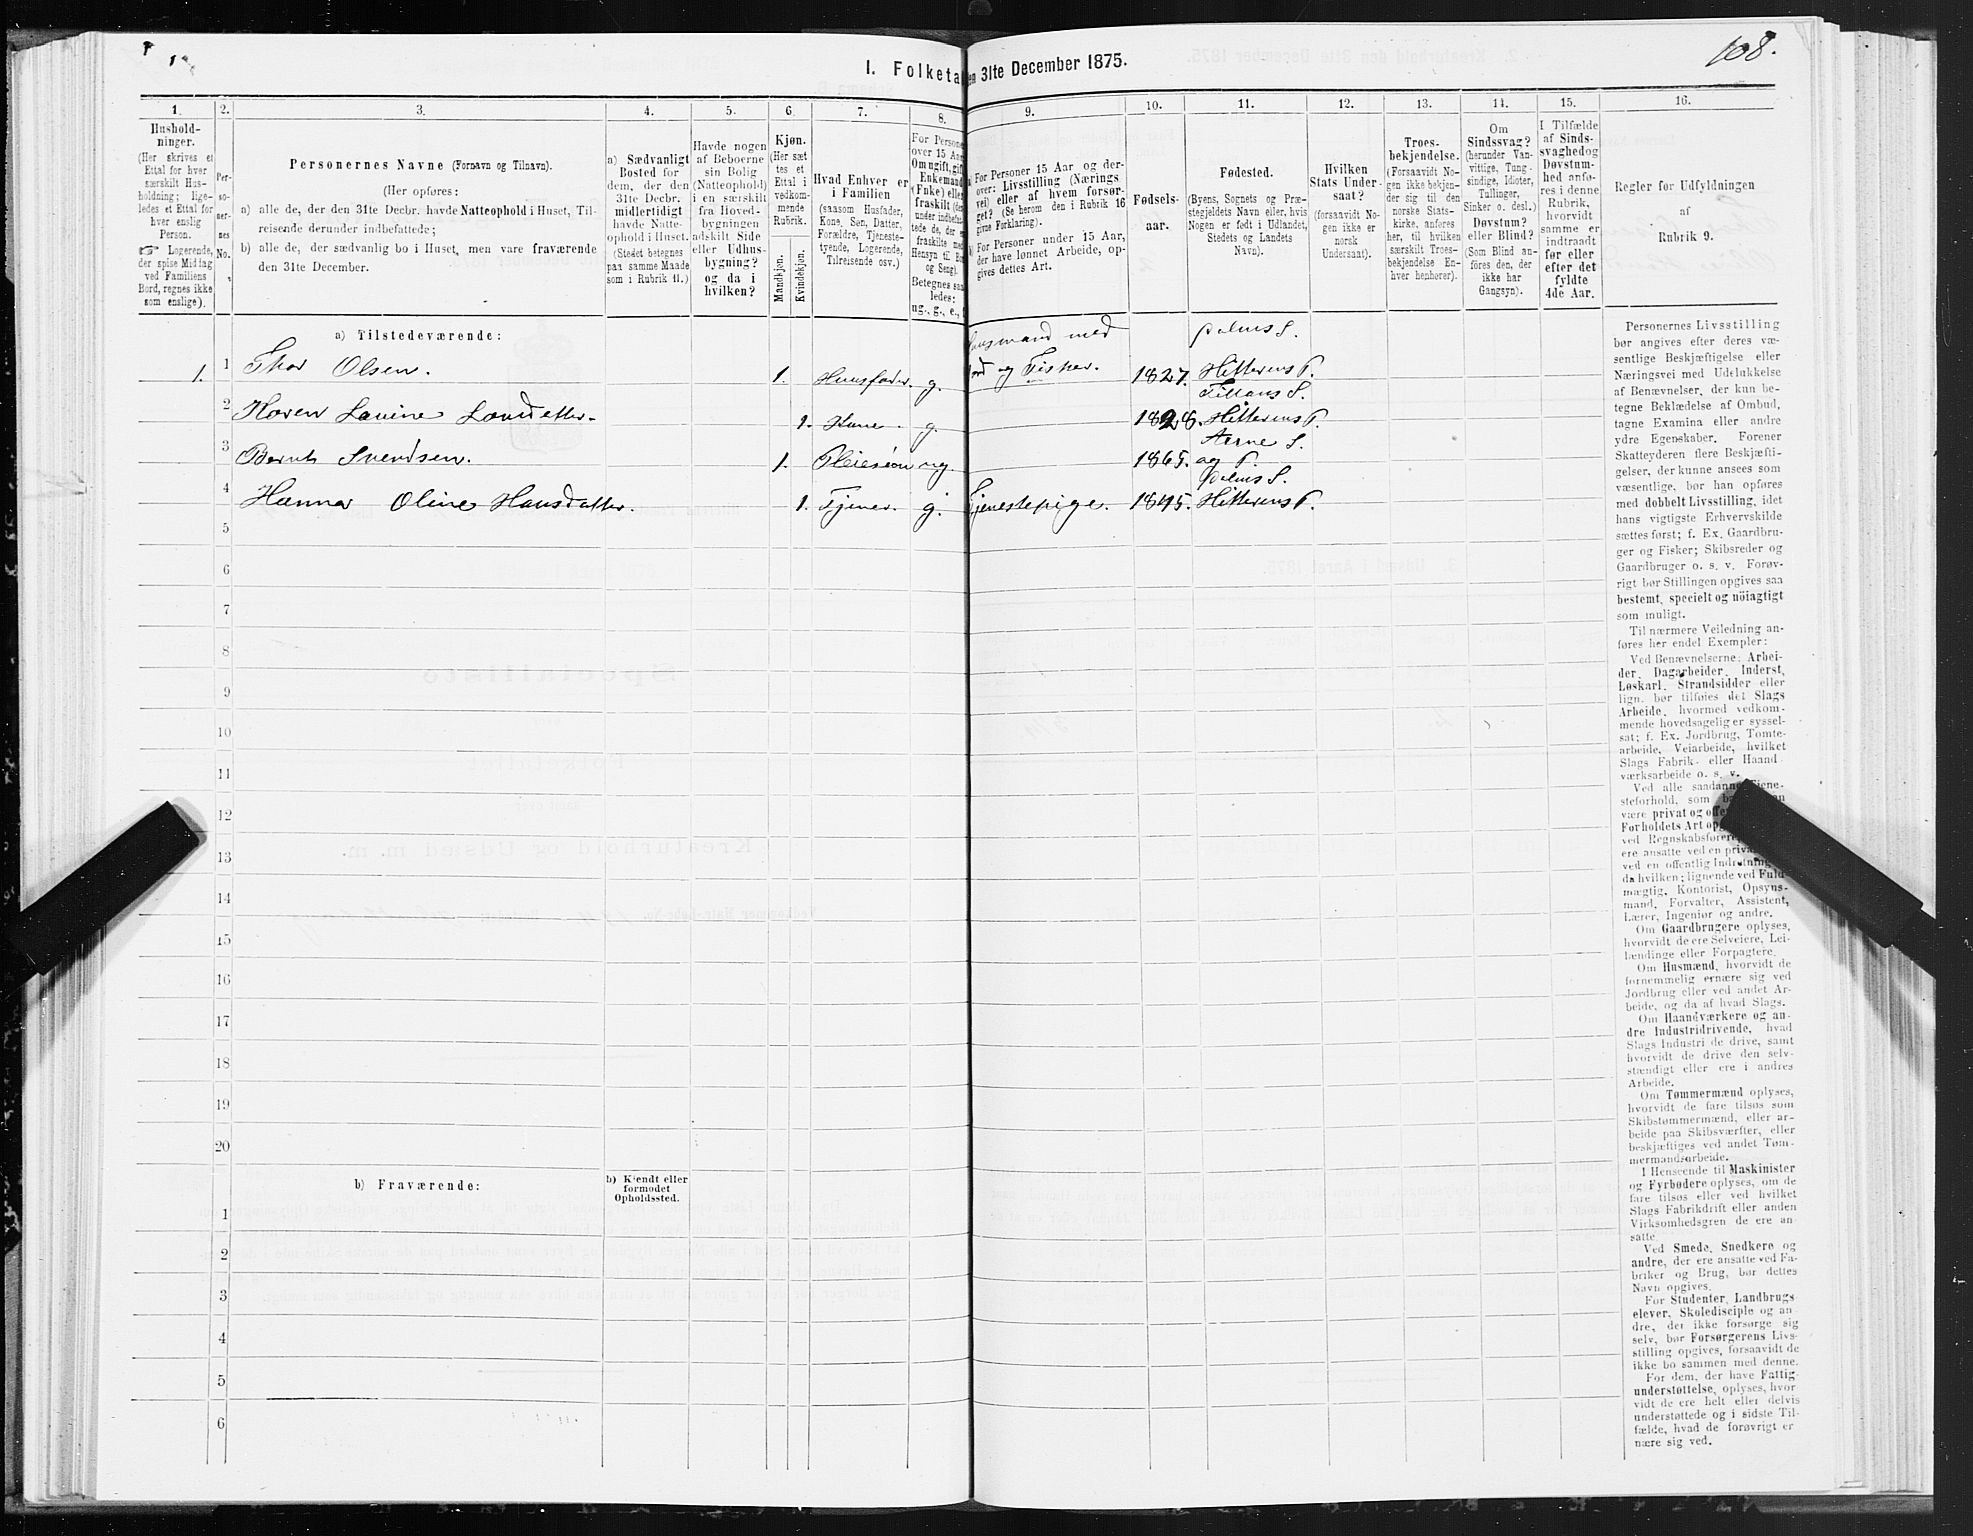 108.
I. Folketa en 31te December 1875.
1. 2. 3. 4. 5. 6. 7. 8. 9. 10. 11. 12. 13. 14. 15. 16.
Hushold-
ninger.
(Her skrives et
Ettal for hver
særskilt Hus-
holdning; lige-
ledes et Ettal for
hver enslig
Person.
☞ Logerende,
der spise Middag
ved Familiens
Bord, regnes ikke
som enslige).
Per-
so-
ner-
nes
No.
Personernes Navne (Fornavn og Tilnavn).
(Her opføres:
a) alle de, der den 31te Decbr. havde Natteophold i Huset, Til-
reisende derunder indbefattede;
b) alle de, der sædvanlig bo i Huset, men vare fraværende
den 31te December.
a) Sædvanligt
Bosted for
dem, der den
31te Decbr.
midlertidigt
havde Natte-
ophold i Huset.
(Stedet betegnes
paa samme Maade
som i Rubrik 11.)
Havde nogen
af Beboerne
sin Bolig
(Natteophold)
i en særskilt
fra Hoved-
bygningen
adskilt Side
eller Udhus-
bygning?
og da i
hvilken?
Kjøn.
(Her sæt
et
Ettal i
vedkom-
mende
Rubrik.
Mandkjøn.
Kvindekjøn.
Hvad Enhver er
i Familien
(saasom Husfader,
Kone, Søn, Datter,
Forældre, Tjeneste-
tyende, Logerende,
Tilreisende osv.)
For Persone
over 15 Aa
Om ugift, gift
Enkemand
(Enke) eller
fraskilt (de
under indbefat-
tede de, der
fraskilte me
Hensyn til Bo
og Seng).
Betegnes saa
ledes:
ug., g., e.,
For Personer 15 Aar og der-
over: Livsstilling (Nærings
vei) eller af hvem forsør-
get? (Se herom den i Rubrik 16
givne Forklaring).
For Personer under 15 Aar,
der have lønnet Arbeide, op-
gives dettes Art.
Fødsels-
aar.
Fødested.
(Byens, Sognets og Præ-
stegjeldets Navn eller, hvis
Nogen er født i Udlandet,
Stedets og Landets
Navn).
Hvilken
Stats Under-
saat?
(forsaavidt No-
gen ikke er
norsk
Undersaat).
Troes-
bekjendelse.
(Forsaavidt No-
gen ikke bekjen-
der sig til den
norske Stats-
kirke, anføres
her, til hvilken
særskilt Troes-
bekjendelse En-
hver henhører).
Om
Sindssvag?
(herunder Van-
vittige, Tung-
sindige, Idioter,
Tullinger,
Sinker o. desl.)
Døvstum?
eller Blind?
(Som Blind an-
føres den, der
ikke har
Gangsyn).
I Tilfælde
af Sinds-
svaghed og
Døvstum-
hed anfø-
res i denne
Rubrik,
hvorvidt
samme er
indtraadt
før eller
efter det
fyldte
4de Aar.
Regler for Udfyldningen
af
Rubrik 9.
a) Tilstedeværende:
mand med Dolms S.
1. 1 Thor Olsen. 1. Huusfader. g. og Fisker. 1827. Hitterens P.
Fillans S.
2 1. Kone. g. 1828. Hitterens P.
S.
3 Bernt Svendsen. 1. Pleiesøn ug. 1865. og P.
Dolms S.
4 Hanna Oline Hansdatter. 1. Tjener. g. Tjenestepige. 1845. Hitterens P.
5
6
7
8
9
10
11
12
13
14
15
16
17
18
19
20
b) Fraværende: b) Kjendt eller
formodet
Opholdssted.
1
2
3
4
5
6
Personernes Livsstilling
bør angives efter deres væ-
sentlige Beskjæftigelse eller
Næringsvei med Udelukkelse
af Benævnelser, der kun be-
tegne Beklædelse af Ombud,
tagne Examina eller andre
ydre Egenskaber. Forener
Skatteyderen flere Beskjæfti-
gelser, der kunne ansees som
væsentlige, bør han opføres
med dobbelt Livsstilling, idet
hans vigtigste Erhvervskilde
sættes først; f. Ex. Gaardbru-
ger og Fisker; Skibsreder og
Gaardbruger o. s. v. Forøv-
rigt bør Stillingen opgives saa
bestemt, specielt og nöiagtigt
som muligt.
Til nærmere Veiledning an-
føres her endel Exempler:
Ved Benævnelserne: Arbei-
der, Dagarbeider, Inderst,
Løskarl, Strandsidder eller
lign. bør tilføies det Slags
Arbeide, hvormed vedkom-
mende hovedsagelig er syssel-
sat; f. Ex. Jordbrug, Tomte-
arbeide, Veiarbeide, hvilket
Slags Fabrik- eller Haand
værksarbeide o. s. v.
Ved alle saadanne Tjene-
steforhold, som
være privat og
Forholdets Art
ved Regnskabsfører
ere ansatte ved en
ved en offentlig Indretning
da hvilken; lignende ved Fuld-
mægtig, Kontorist, Opsyns-
mand, Forvalter, Assistent,
Lærer, Ingeniør og andre.
Om Gaardbrugere oplyses,
hvorvidt de ere Selveiere, Lei-
lændinge eller Forpagtere.
Om Husmænd, hvorvidt de
fornemmelig ernære sig ved
Jordbrug eller ved andet Ar-
beide, og da af hvad Slags.
Om Haandværkere og an-
dre Industridrivende, hvad
Slags Industri de drive, samt
hvorvidt de drive den selv-
stændigt eller ere i andres
Arbeide.
Om Tømmermænd oplyses,
hvorvidt de fare tilsøs som
Skibstømmermænd, eller ar-
beide paa Skibsværfter, eller
beskjæftiges ved andet Tøm-
mermandsarbeide.
I Henseende til Maskinister
og Fyrbødere oplyses, om de
fare tilsøs eller ved hvilket
Slags Fabrikdrift eller anden
Virksomhedsgren de ere an-
satte.
Ved Smede, Snedkere og
andre, der ere ansatte ved Fa-
briker og Brug, bør dettes
Navn opgives.
For Studenter, Landbrugs
elever, Skoledisciple og an-
dre, der ikke forsørge sig
selv, bør Forsørgerens Livs-
stilling opgives, forsaavidt de
ikke bo sammen med denne.
For dem, der have Fattig-
understøttelse, oplyses, hvor
vidt de ere helt eller delvis
understøttede og i sidste Til-
fælde, hvad de forøvrigt er
nære sig ved.